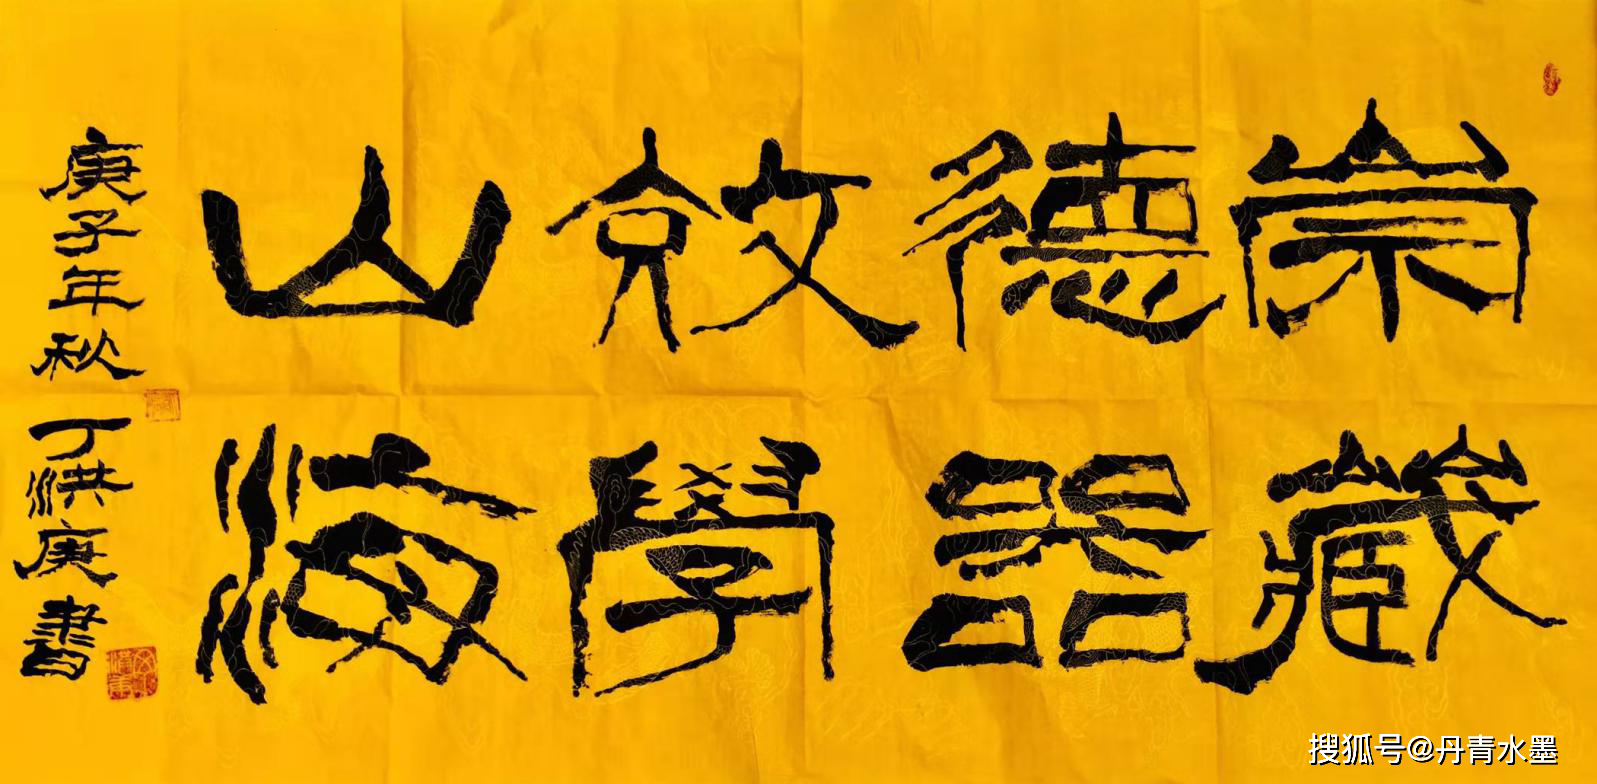 崇德效山
藏器學海
庚子年秋
丁洪庚書
搜狐号@丹青水墨